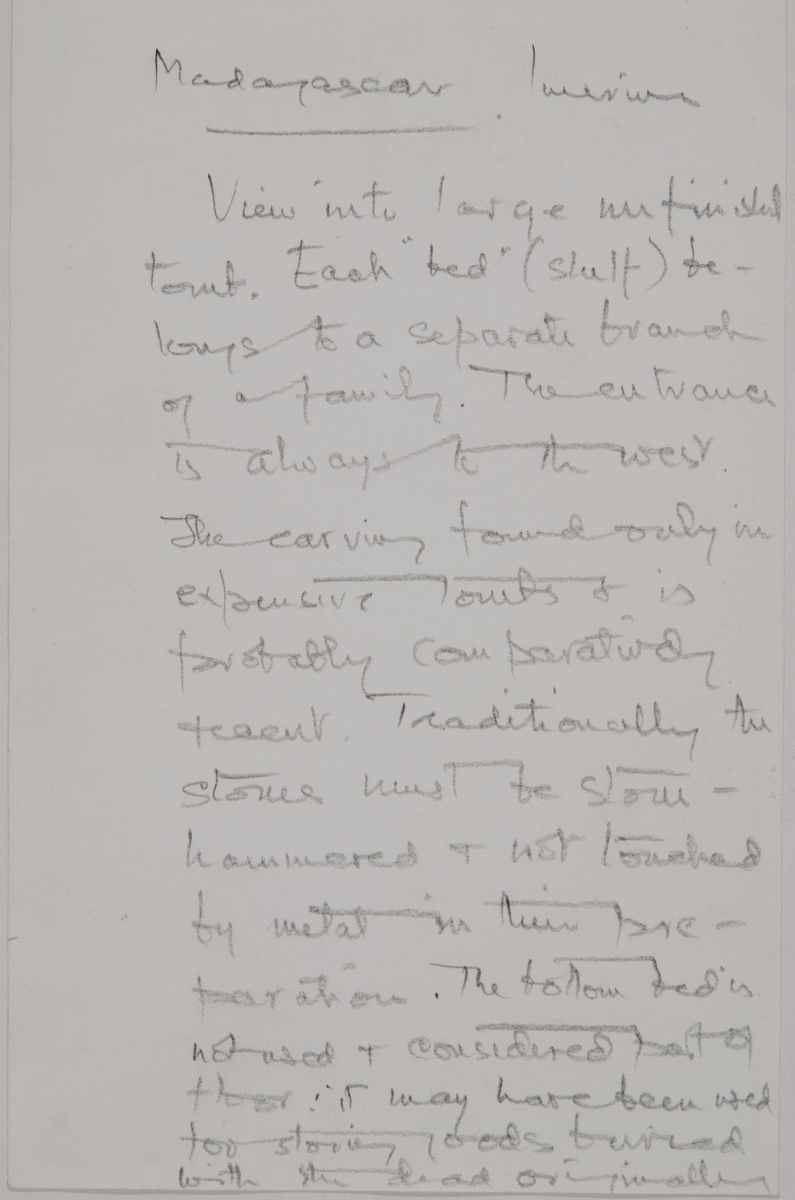 Madagascar. Imerina
View into large unfinished
tomb. Each "bed" (shelf) be-
longs to a separate branch
of a family. The entrance
is always to the west.
The carving found only in
expensive tombs & is
probably comparatively
recent. Traditionally the
stones must be stone-
hammered & not touched
by metal in their pre-
paration. The bottom bed is
not used & considered part of
floor: it may have been used
for storing goods buried
with the dead originally